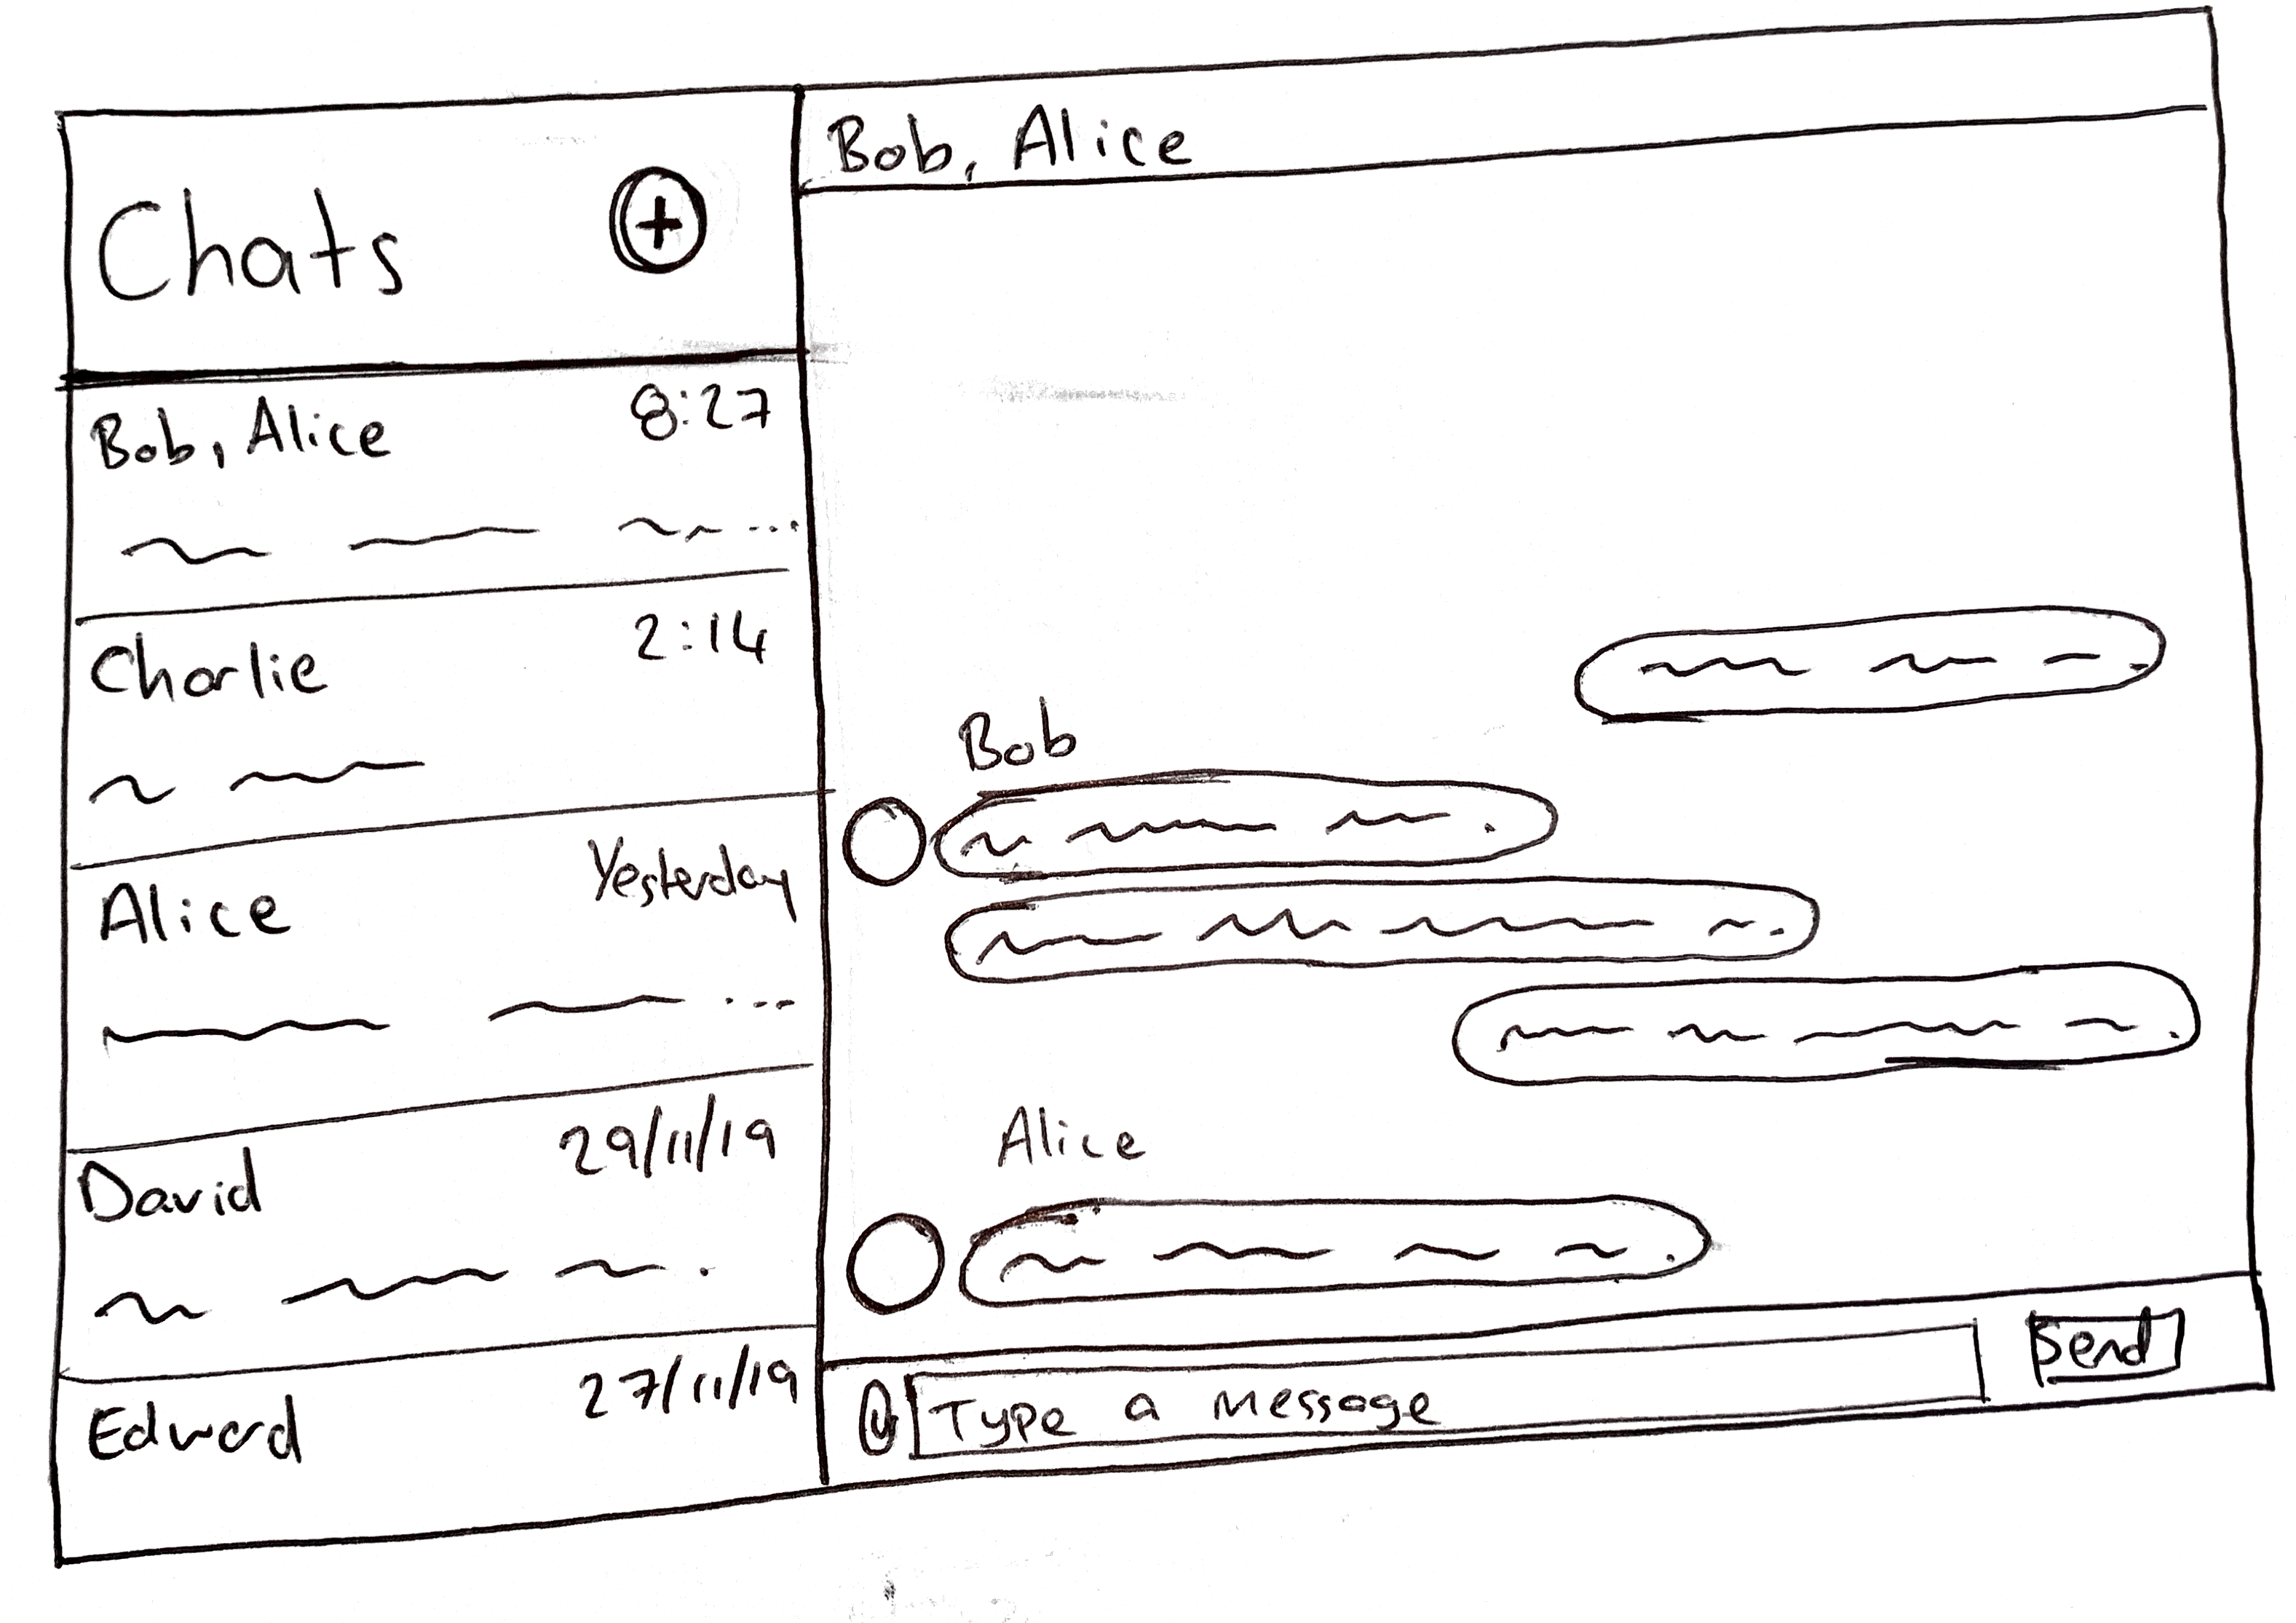 Chats
Bob, Alice 8:27
Charlie 2:14
Alice Yesterday
David 29/11/19
Edward 27/11/19
Bob, Alice
Bob
Alice
Type a message
Send